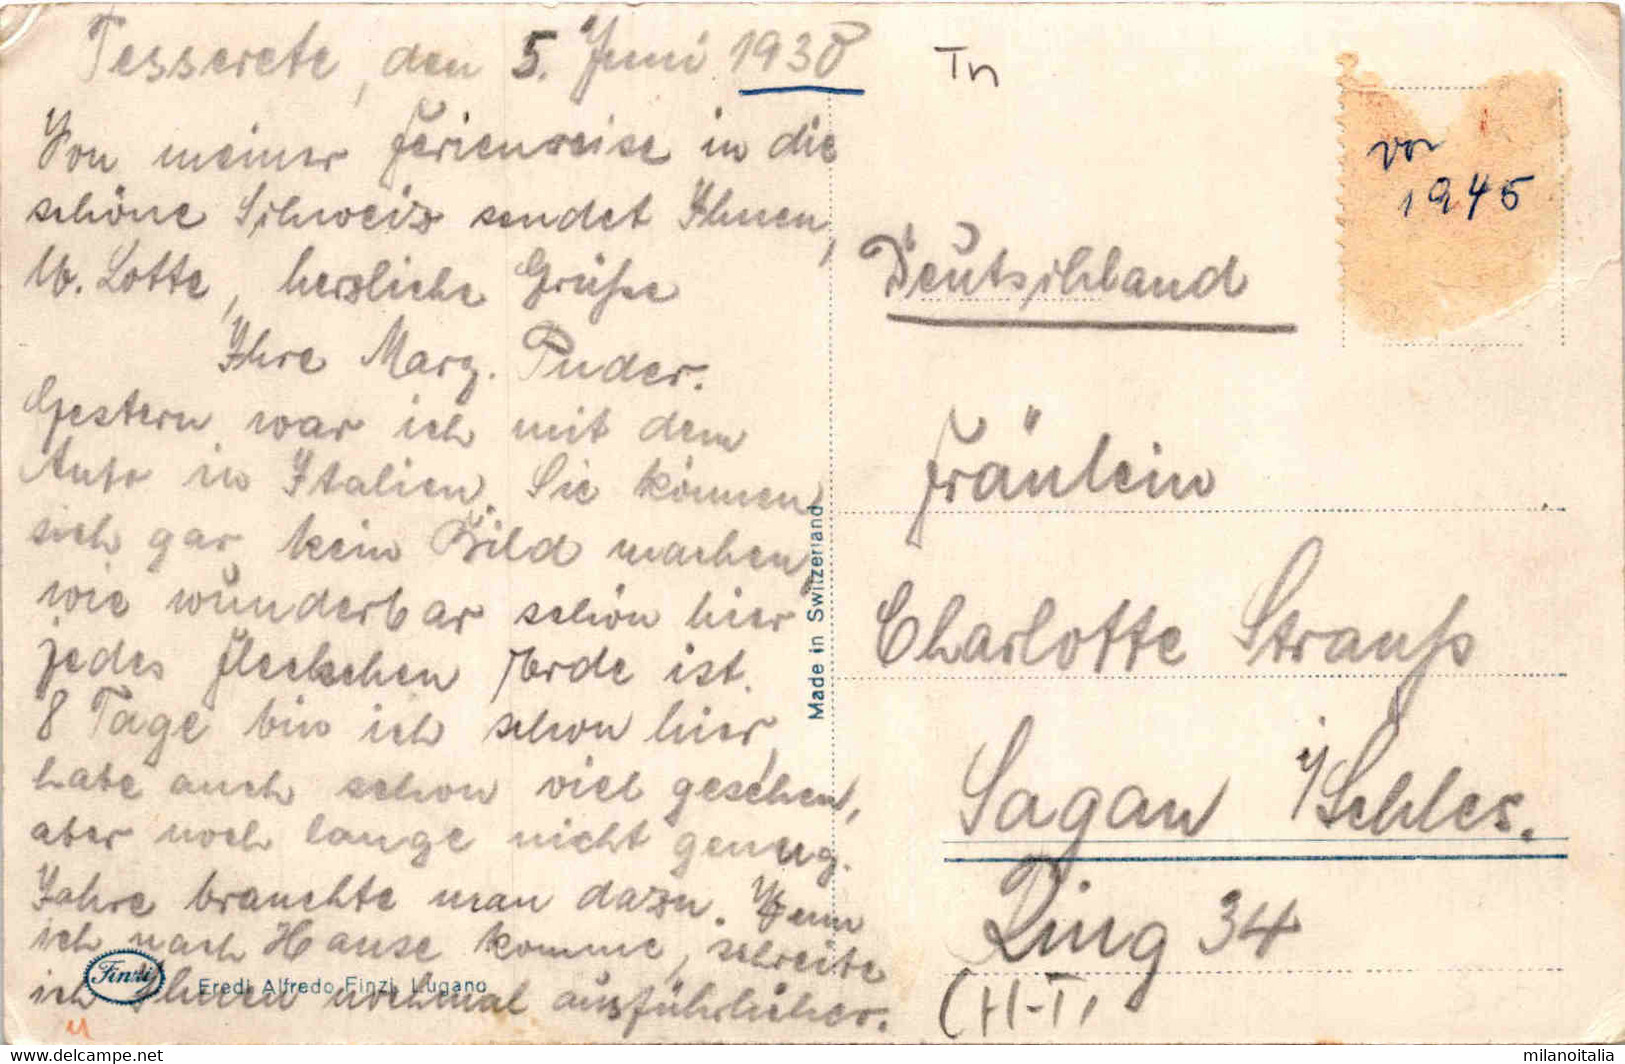 Tesserete, den 5. Juni 1938
Von meiner Ferienreise in die
schöne Schweiz sendet Ihnen,
lb. Lotte, herzliche Grüße
Ihre Marg. Puder.
Gestern war ich mit dem
Auto in Italien. Sie können
sich gar kein Bild machen,
wie wunderbar schön hier
jedes Fleckchen Erde ist.
8 Tage bin ich schon hier,
habe auch schon viel gesehen,
aber noch lange nicht genug.
Jahre brauchte man dazu. Wenn
ich nach Hause komme, schreibe
ich Ihnen nochmal ausführlicher.
Finzi
Eredi Alfredo Finzi, Lugano
Made in Switzerland
Tn
vor
1945
Deutschland
Fräulein
Charlotte Strauß
Sagan i/Schles.
Ring 34
(H-T,
delcampe.net
milanoitalia